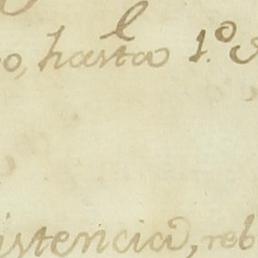 o, hasta 1.º
istencia, reb